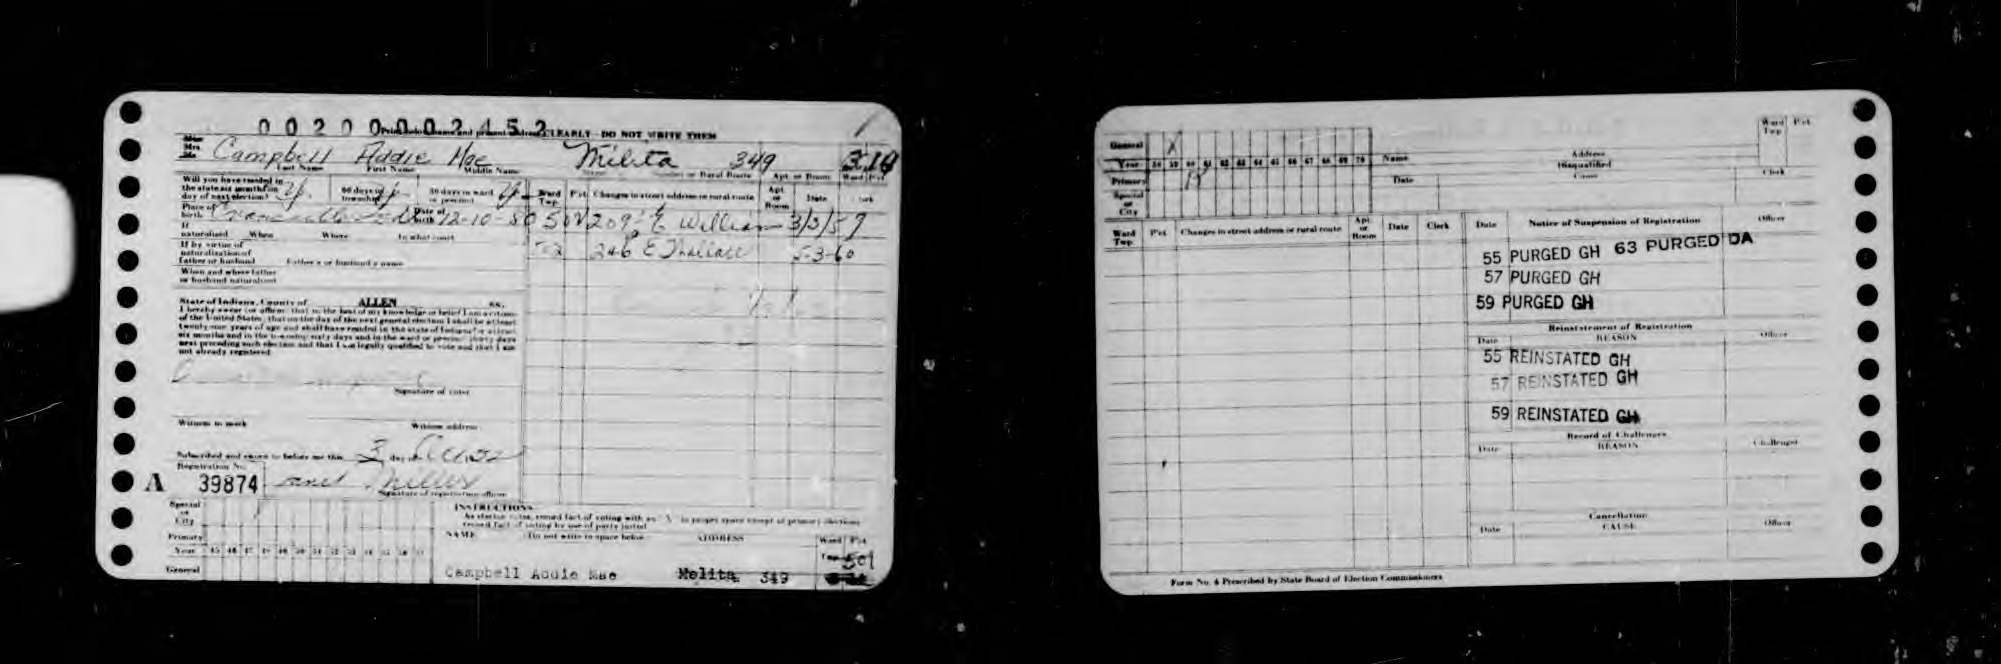 00200002452
Print below name and present address CLEARLY - DO NOT WRITE THEM
Miss
Mrs.
Mr.
Campbell Addie Mae Melita 349 314
Last Name First Name Middle Name Street or Rural Route Apt. or Room Ward Pct.
Will you have resided in
the state six months on
day of next election?
60 days in
township
30 days in ward
or precinct
Ward
Twp.
Pct. Changes in street address or rural route
Apt.
or
Room
Date
Clerk
Place of
birth
Date of
birth 12-10-
209 E William 3/3/59
246 E Wallace 5-3-60
If
naturalized When Where In what court
If by virtue of
naturalization of
father or husband Father's or husband's name
When and where father
or husband naturalized
State of Indiana, County of ALLEN ss.
I hereby swear (or affirm) that to the best of my knowledge or belief I am a citizen
of the United States; that on the day of the next general election I shall be at least
twenty-one years of age and shall have resided in the state of Indiana for at least
six months and in the township sixty days and in the ward or precinct thirty days
next preceding such election and that I am legally qualified to vote and that I am
not already registered.
Signature of voter
Witness to mark Witness address
Subscribed and sworn to before me this 3 day of
Registration No.
A 39874 Janet Miller
Signature of registration officer
Special
or
City
Primary
Year 45 46 47 48 49 50 51 52 53 54 55 56 57
General
INSTRUCTIONS
As elector votes, record fact of voting with an X in proper space except at primary elections
record fact of voting by use of party initial
NAME (Do not write in space below) ADDRESS Ward Pct.
Twp.
501
Campbell Addie Mae Melita 349
General X
Year 58 59 60 61 62 63 64 65 66 67 68 69 70
Primary
Special
or
City
Name Address
Disqualified
Date Cause Clerk
Ward
Twp.
Pct.
Ward
Twp.
Pct. Changes in street address or rural route
Apt.
or
Room
Date Clerk
Date Notice of Suspension of Registration Officer
55 PURGED GH 63 PURGED DA
57 PURGED GH
59 PURGED GH
Reinstatement of Registration
Date REASON Officer
55 REINSTATED GH
57 REINSTATED GH
59 REINSTATED GH
Record of Challenges
Date REASON Challenger
Cancellation
Date CAUSE Officer
Form No. 6 Prescribed by State Board of Election Commissioners